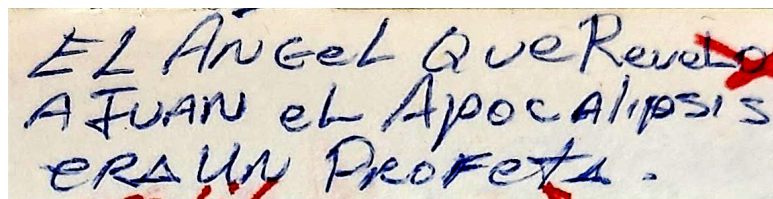 EL ANGEL QUE ReveLO
A JUAN eL APOCALIPSIS
eRA UN PROFeTA.